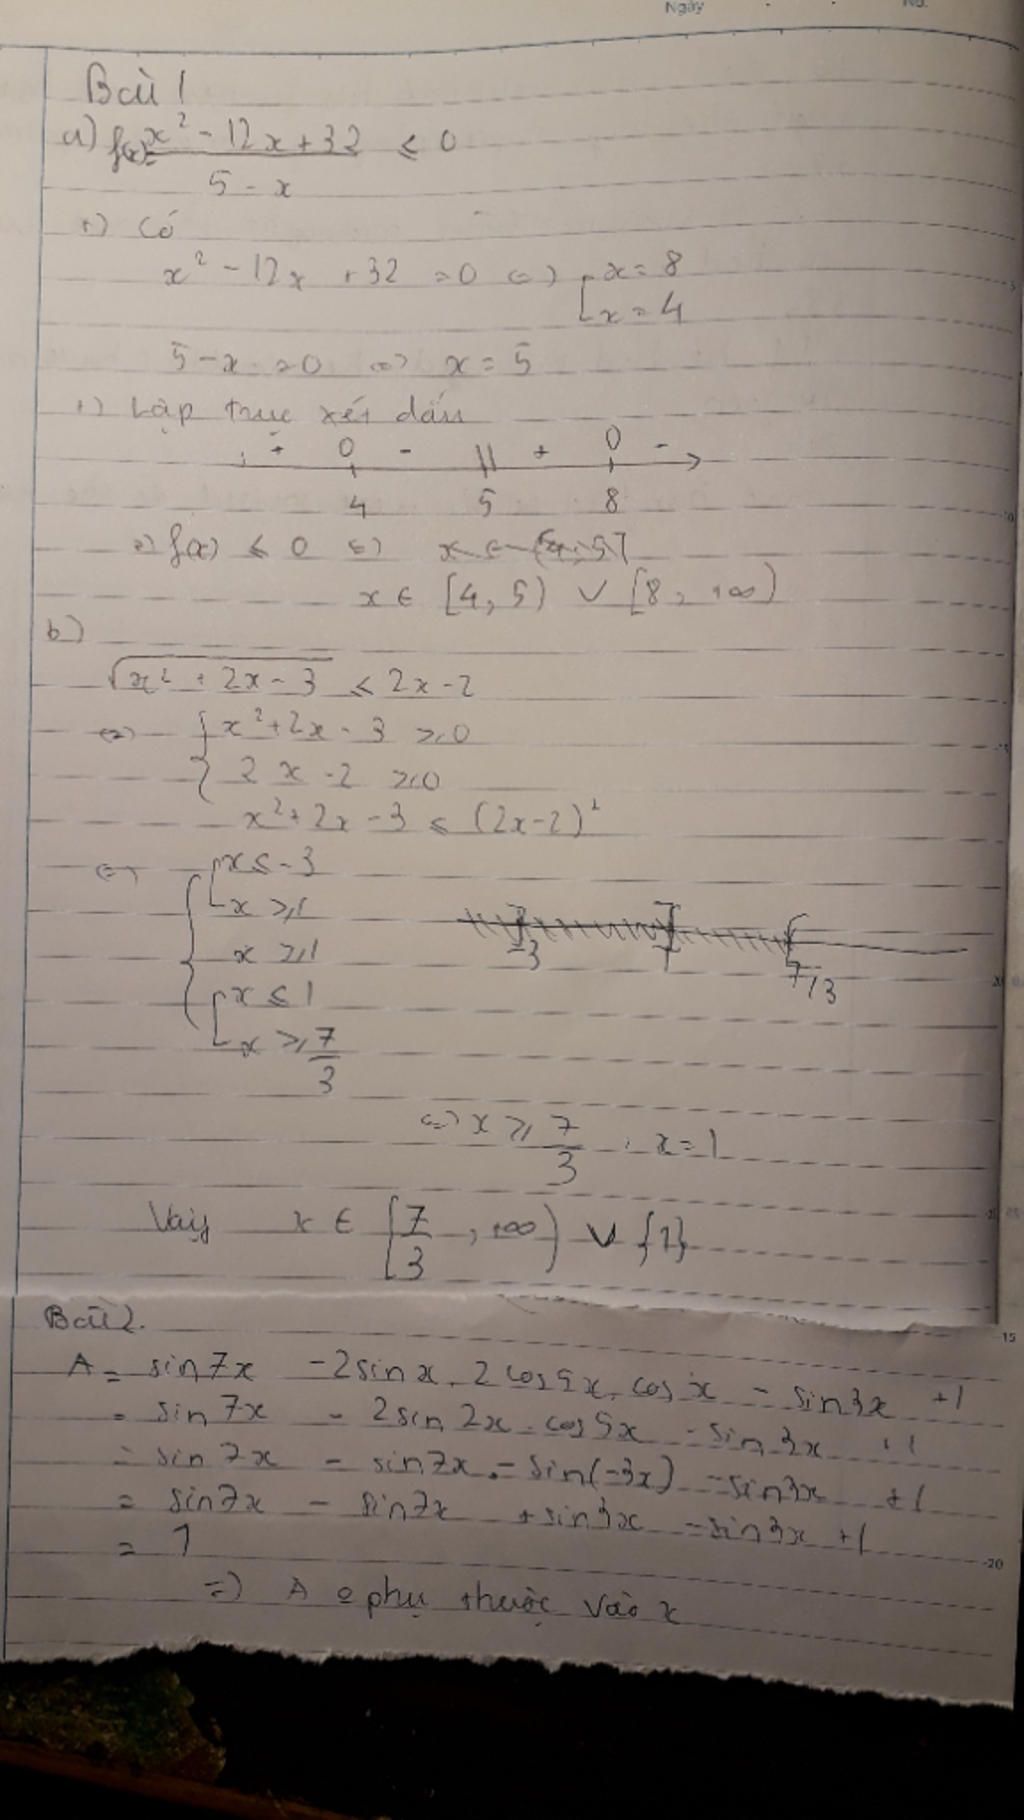 Ngày No.
Bài 1
a) f(x)= x² - 12x + 32 / 5 - x ≤ 0
+) Có
x² - 12x + 32 = 0 <=> [ x = 8
x = 4
5 - x = 0 <=> x = 5
+) Lập trục xét dấu
+ 0 - || + 0 -
4 5 8
=) f(x) ≤ 0 <=>
x ∈ [4, 5) ∨ [8, +∞)
b)
√x² + 2x - 3 ≤ 2x - 2
<=> { x² + 2x - 3 ≥ 0
2x - 2 ≥ 0
x² + 2x - 3 ≤ (2x-2)²
<=> { [ x ≤ -3
x ≥ 1
x ≥ 1
[ x ≤ 1
x ≥ 7/3
-3 1 7/3
<=> x ≥ 7/3 , x = 1
Vậy x ∈ [7/3, +∞) ∨ {1}
Bài 2.
A = sin7x - 2sinx. 2cos5x. cosx - sin3x + 1
= sin7x - 2sin2x. cos5x - sin3x + 1
= sin7x - sin7x - sin(-3x) - sin3x + 1
= sin7x - sin7x + sin3x - sin3x + 1
= 1
=) A o phụ thuộc vào x
15
20